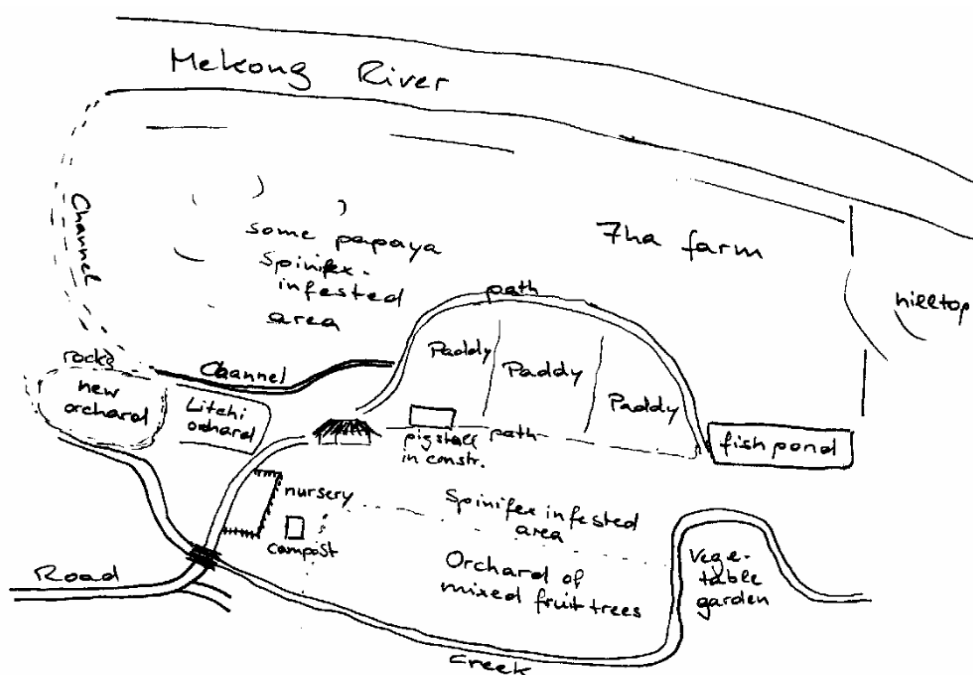 Mekong River
Channel
some papaya
Spinifex-
infested
area
7ha farm
hilltop
path
rocks
Channel
Paddy
Paddy
Paddy
new
orchard
Litchi
orchard
pigstall
in constr.
path
fishpond
nursery
compost
Spinifex infested
area
Orchard of
mixed fruit trees
Vege-
table
garden
Road
Creek